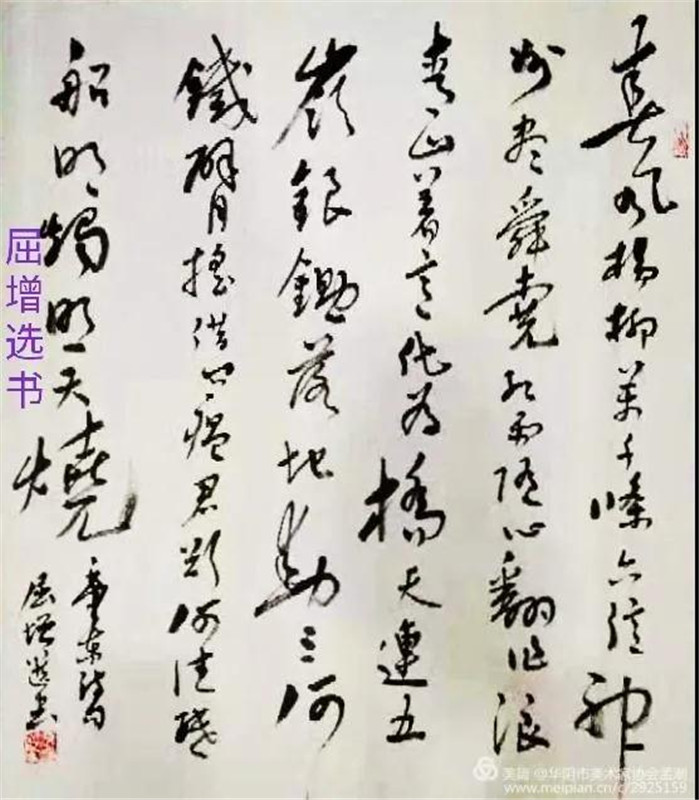 春风楊柳萬千條六億神
州尽舜堯红雨随心翻作浪
青山着意化为橋天連五
嶺銀鋤落地動三河
鐵臂搖借问瘟君欲何往纸
船明燭照天燒
屈增选书
屈增选书
美篇 @华阴市美术家协会孟潮
www.meipian.cn/c/2925159